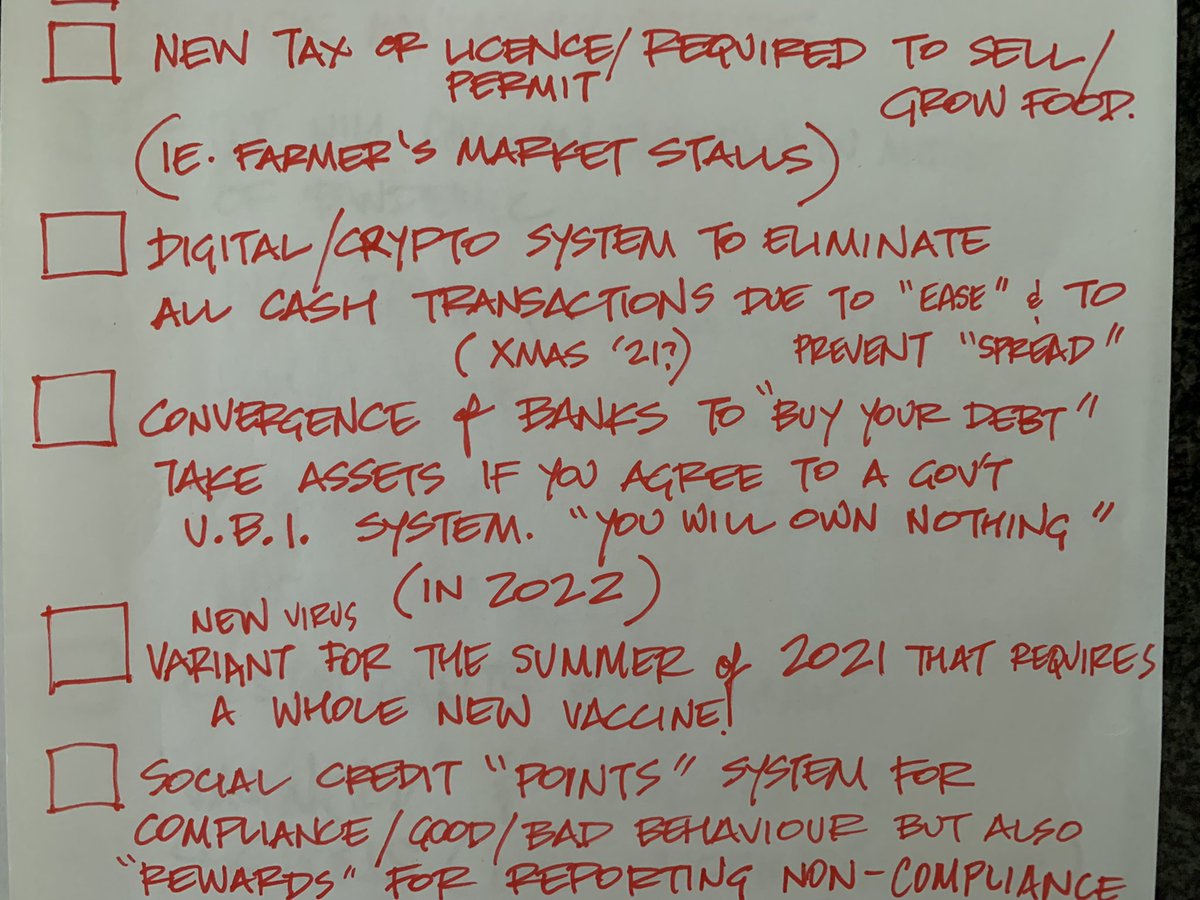 NEW TAX OR LICENCE/ REQUIRED TO SELL/
PERMIT GROW FOOD.
(IE. FARMER'S MARKET STALLS)
DIGITAL/CRYPTO SYSTEM TO ELIMINATE
ALL CASH TRANSACTIONS DUE TO "EASE" & TO
(XMAS '21?) PREVENT "SPREAD"
CONVERGENCE of BANKS TO "BUY YOUR DEBT"
TAKE ASSETS IF YOU AGREE TO A GOV'T
U.B.I. SYSTEM. "YOU WILL OWN NOTHING"
(IN 2022)
NEW VIRUS
VARIANT FOR THE SUMMER of 2021 THAT REQUIRES
A WHOLE NEW VACCINE!
SOCIAL CREDIT "POINTS" SYSTEM FOR
COMPLIANCE/GOOD/BAD BEHAVIOUR BUT ALSO
"REWARDS" FOR REPORTING NON-COMPLIANCE